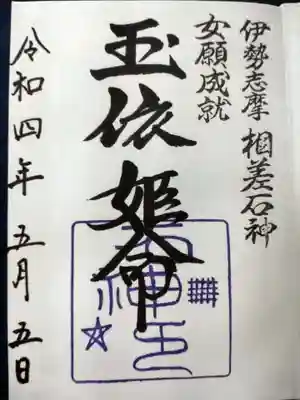 伊勢志摩 相差石神
女願成就
玉依姫命
令和四年 五月 五日